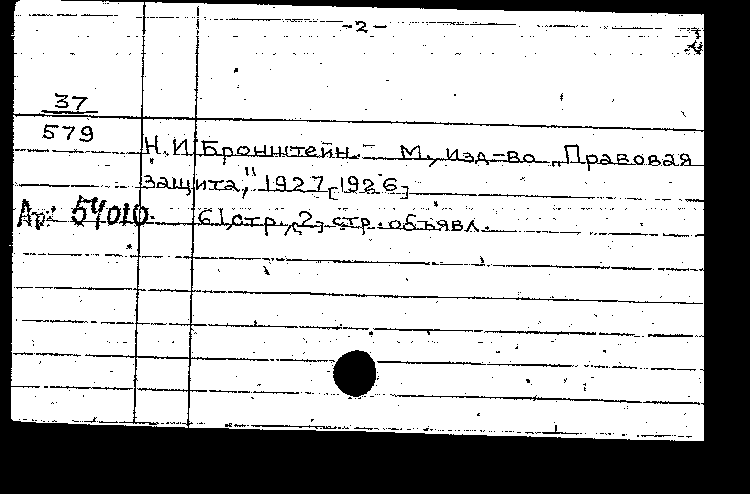 -2-
37
579
Н.И. Бронштейн. - М., изд-во „Правовая
защита,“ 1927 [1926]
Ар: 54010. 61, стр., [2] стр. объявл.